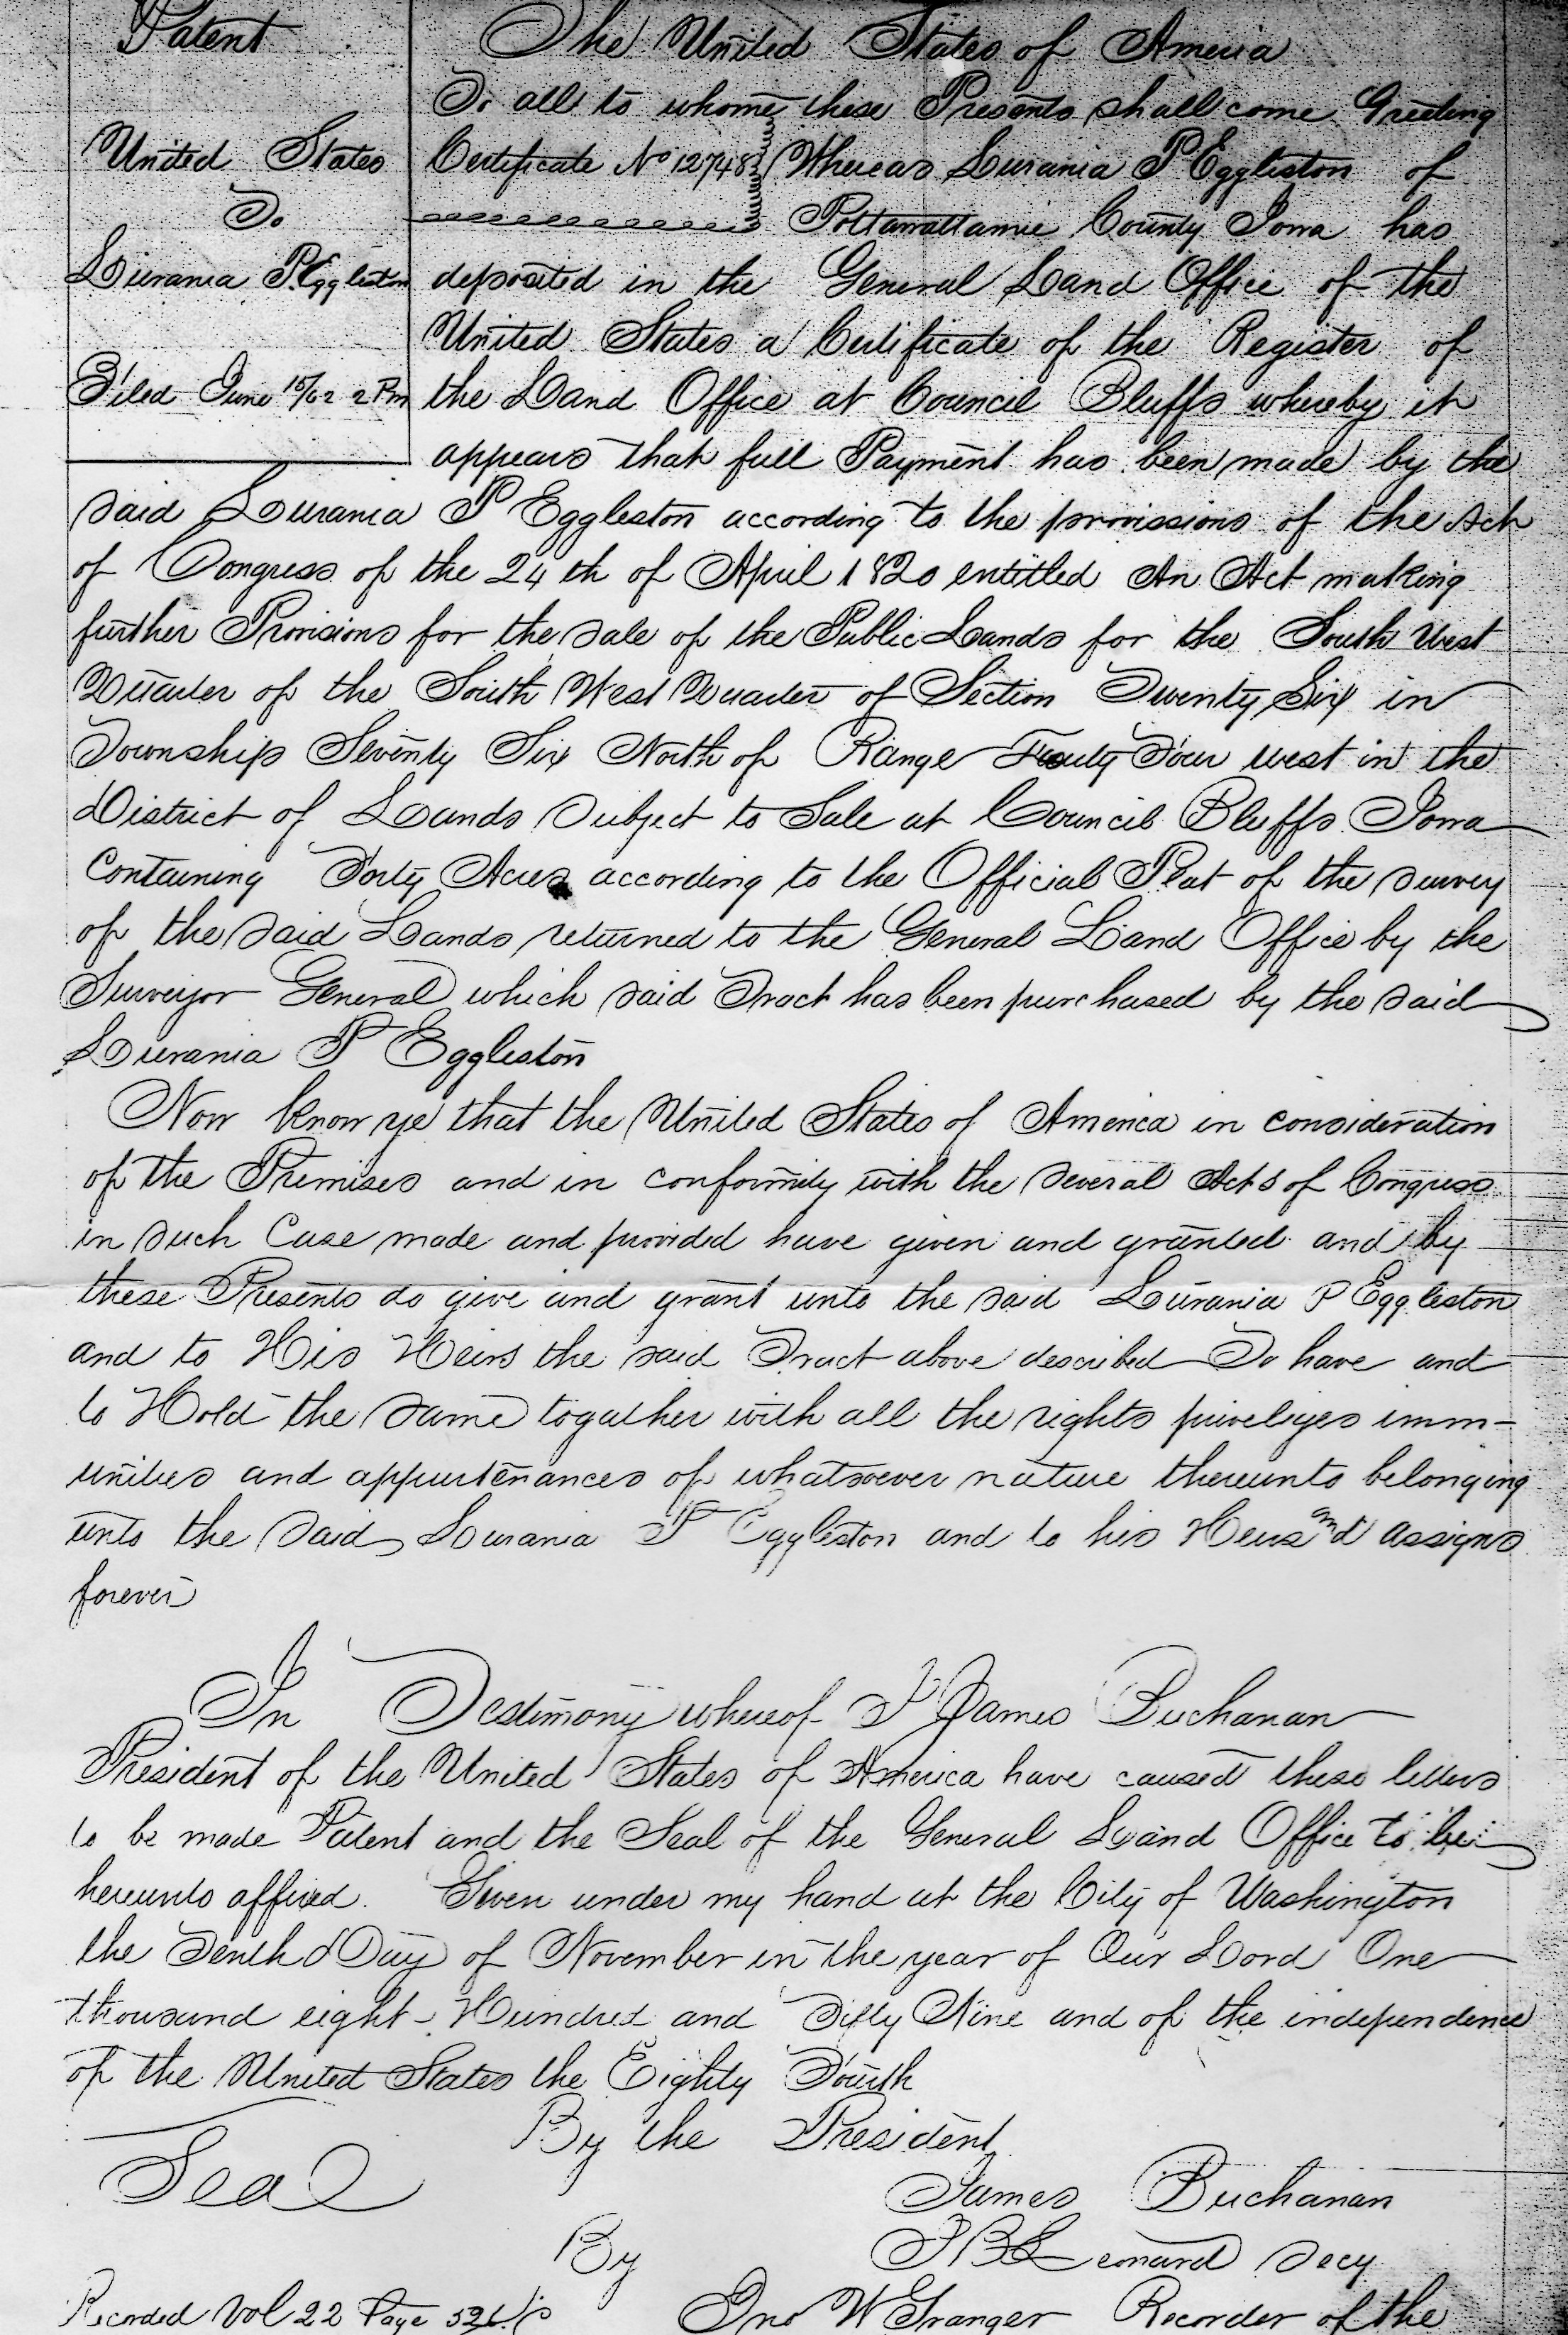 Patent
United States
To
Lurania P Eggleston
Filed June 15/62 2 Pm
The United States of America
To all to whome these Presents shall come Greeting
Certificate No 12748 Whereas Lurania P Eggleston of
Pottawattamie County Iowa has
deposited in the General Land Office of the
United States a Certificate of the Register of
the Land Office at Council Bluffs whereby it
appears that full Payment has been made by the
said Lurania P Eggleston according to the provissions of the Act
of Congress of the 24th of April 1820 entitled An Act making
further Provisions for the sale of the Public Lands for the South West
Quarter of the South West Quarter of Section Twenty Six in
Township Seventy Six North of Range Forty Four west in the
District of Lands Subject to Sale at Council Bluffs Iowa
Containing Forty Acres according to the Official Plat of the survey
of the said Lands returned to the General Land Office by the
Surveyor General which said Tract has been purchased by the said
Lurania P Eggleston
Now know ye that the United States of America in consideration
of the Premises and in conformity with the several Acts of Congress
in such Case made and provided have given and granted and by
these Presents do give and grant unto the said Lurania P Eggleston
and to His Heirs the said Tract above described To have and
to Hold the same togather with all the rights priveliges imm-
unities and appurtenances of whatsoever nature thereunto belonging
unto the said Lurania P Eggleston and to his Heirs and assigns
forever
In Testimony whereof I James Buchanan
President of the United States of America have caused these letters
to be made Patent and the Seal of the General Land Office to be
hereunto affixed. Given under my hand at the City of Washington
the Tenth Day of November in the year of Our Lord One
thousand eight Hundred and Fifty Nine and of the independence
of the United States the Eighty Fourth
By the President
Seal
James Buchanan
By
J B Leonard Secy
Recorded Vol 22 Page
Jno W Granger Recorder of the